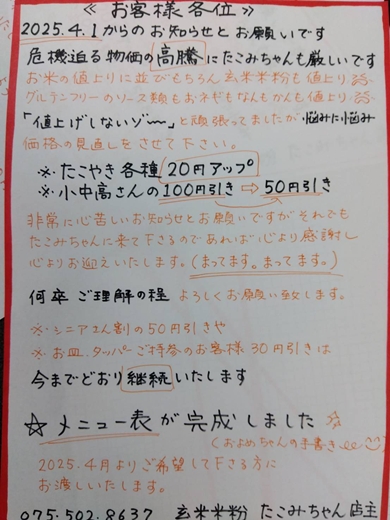 ≪ お客様各位 ≫
2025.4.1からの お知らせと お願いです
危機迫る物価の高騰にたこみちゃんも厳しいです
お米の値上りに並びもちろん 玄米米粉も値上り
グルテンフリーのソース類もおネギもなんもかんも値上り
「値上げしないゾ〜」と頑張ってましたが 悩みに悩み
価格の見直しをさせて下さい。
※ たこやき各種 20円アップ
※ 小中高さんの100円引き⇨50円引き
非常に心苦しいお知らせとお願いですが それでも
たこみちゃんに来て下さるのであれば 心より感謝し
心よりお迎えいたします。(まってます。まってます。)
何卒 ご理解の程 よろしくお願い致します。
※ シニアさん割の50円引きや
※ お皿、タッパーご持参のお客様 30円引きは
今までどおり継続いたします
☆ メニュー表が完成しました
(およめちゃんの手書き
2025.4月よりご希望して下さる方に
お渡しいたします。
075-502-8637 玄米米粉 たこみちゃん店主